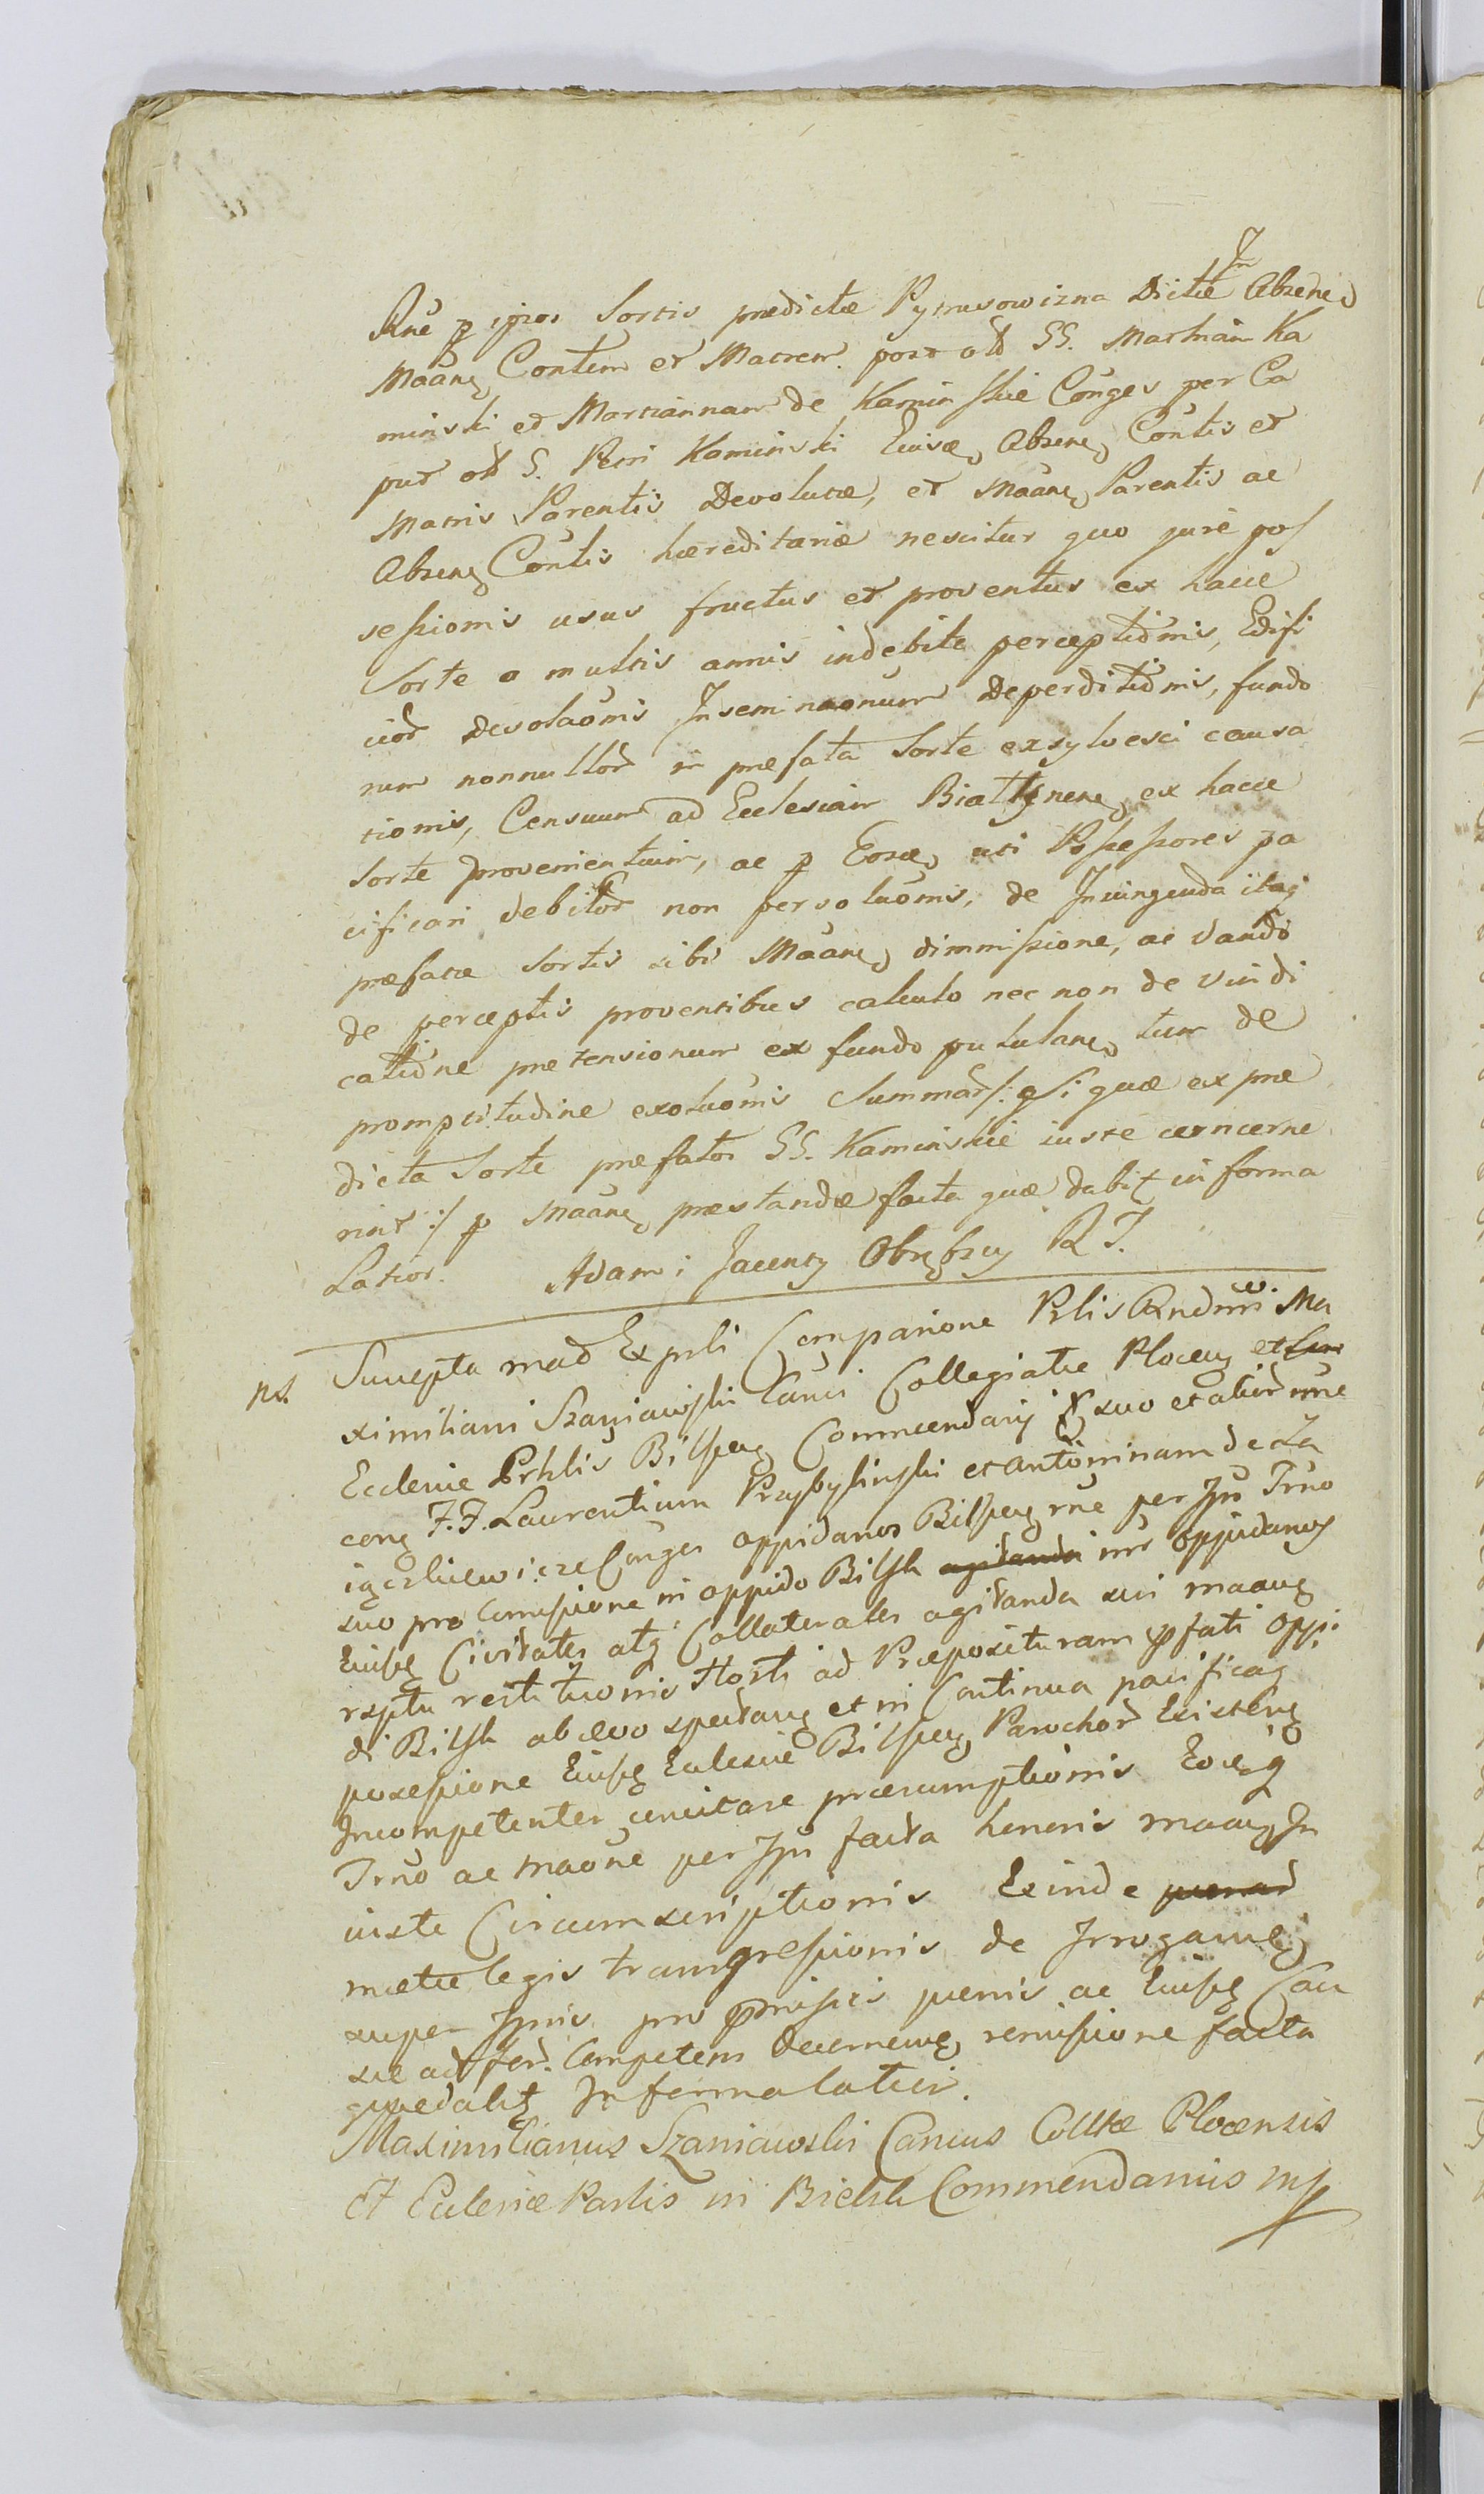 Rne p ipsos Sortis prædictæ Pytrusowizna Dictæ In Absene
Maane Contem et Matrem post old SS. Mathiam Ka
minski et Mariannam de Kaminskie Conges per Ca
put old S. Petri Kaminski Eiusd Absene Contis et
Matris Parentis Devolutæ, et Maane Parentis ac
Absene Contis hæreditariæ nescitur quo jure pos
sessionis usus fructus et proventus ex hacce
Sorte a multis annis indebite perceptionis, Edifi
cior Desolaonis Inseminaonum Deperditionis, fundo
rum nonnullor in præfata Sorte exsylvesci causa
tionis, Censuum ad Ecclesiam ex hacce
Sorte provenientium, ac p Eosd uti Possessores pa
cificari debitor non persoluonis, de Iniungenda itaq
præfatæ Sortis sibi Maane dimmissione, ac dando
de perceptis proventibus calculo nec non de vindi
catione prætensionum ex fundo pullulane tum de
promptitudine exoluonis Summar /: qSi quæ ex præ
dicta Sorte præfatos SS. Kaminskie iuste cerncerne
rint :/ p Maane præstandæ facta quæ dabit in forma
Latior. Adam i Jacenty Obrębscy R T.
ns. Suscepta mad Exprli Comparione Prlis Rndmi Ma
ximiliani Szaniawski Canci Collegiatæ Plocen et
Ecclesiæ Prhlis Bilscen Commendarij suo et alior nne
cone F.F. Laurentium Przybylinski et Antoninam de Za
Conges oppidanos Bilscen rne per Ipn Trno
suo pro Comissione in oppido Bilsk agitanda nrs oppidanos
Eiusd Civitates atq Collaterales agitanda sui maane
rsptu restituonis Horti ad Præposituram pfati Oppi
di Bilsk ab ævo spectane et in Continua pacificaq
posessione Eiusd Ecclesiæ Bilscen Parochor Existens
Incompetenter præsumptionis Eoq
Trno ac maone per Ipn facta honoris maane In
iuste Circumscriptionis Exinde
metæ legis transgressionis de Irrogane
super Ipnis pro pmissis pænis ac Eiusd Cau
sæ ad for. Competens Decernene remissione facta
quæ dabit In forma latiori.
Maximilianus Szaniawski Cancus Colltæ Plocensis
Et Ecclesiæ Parlis in Bielsk Commendarius mp